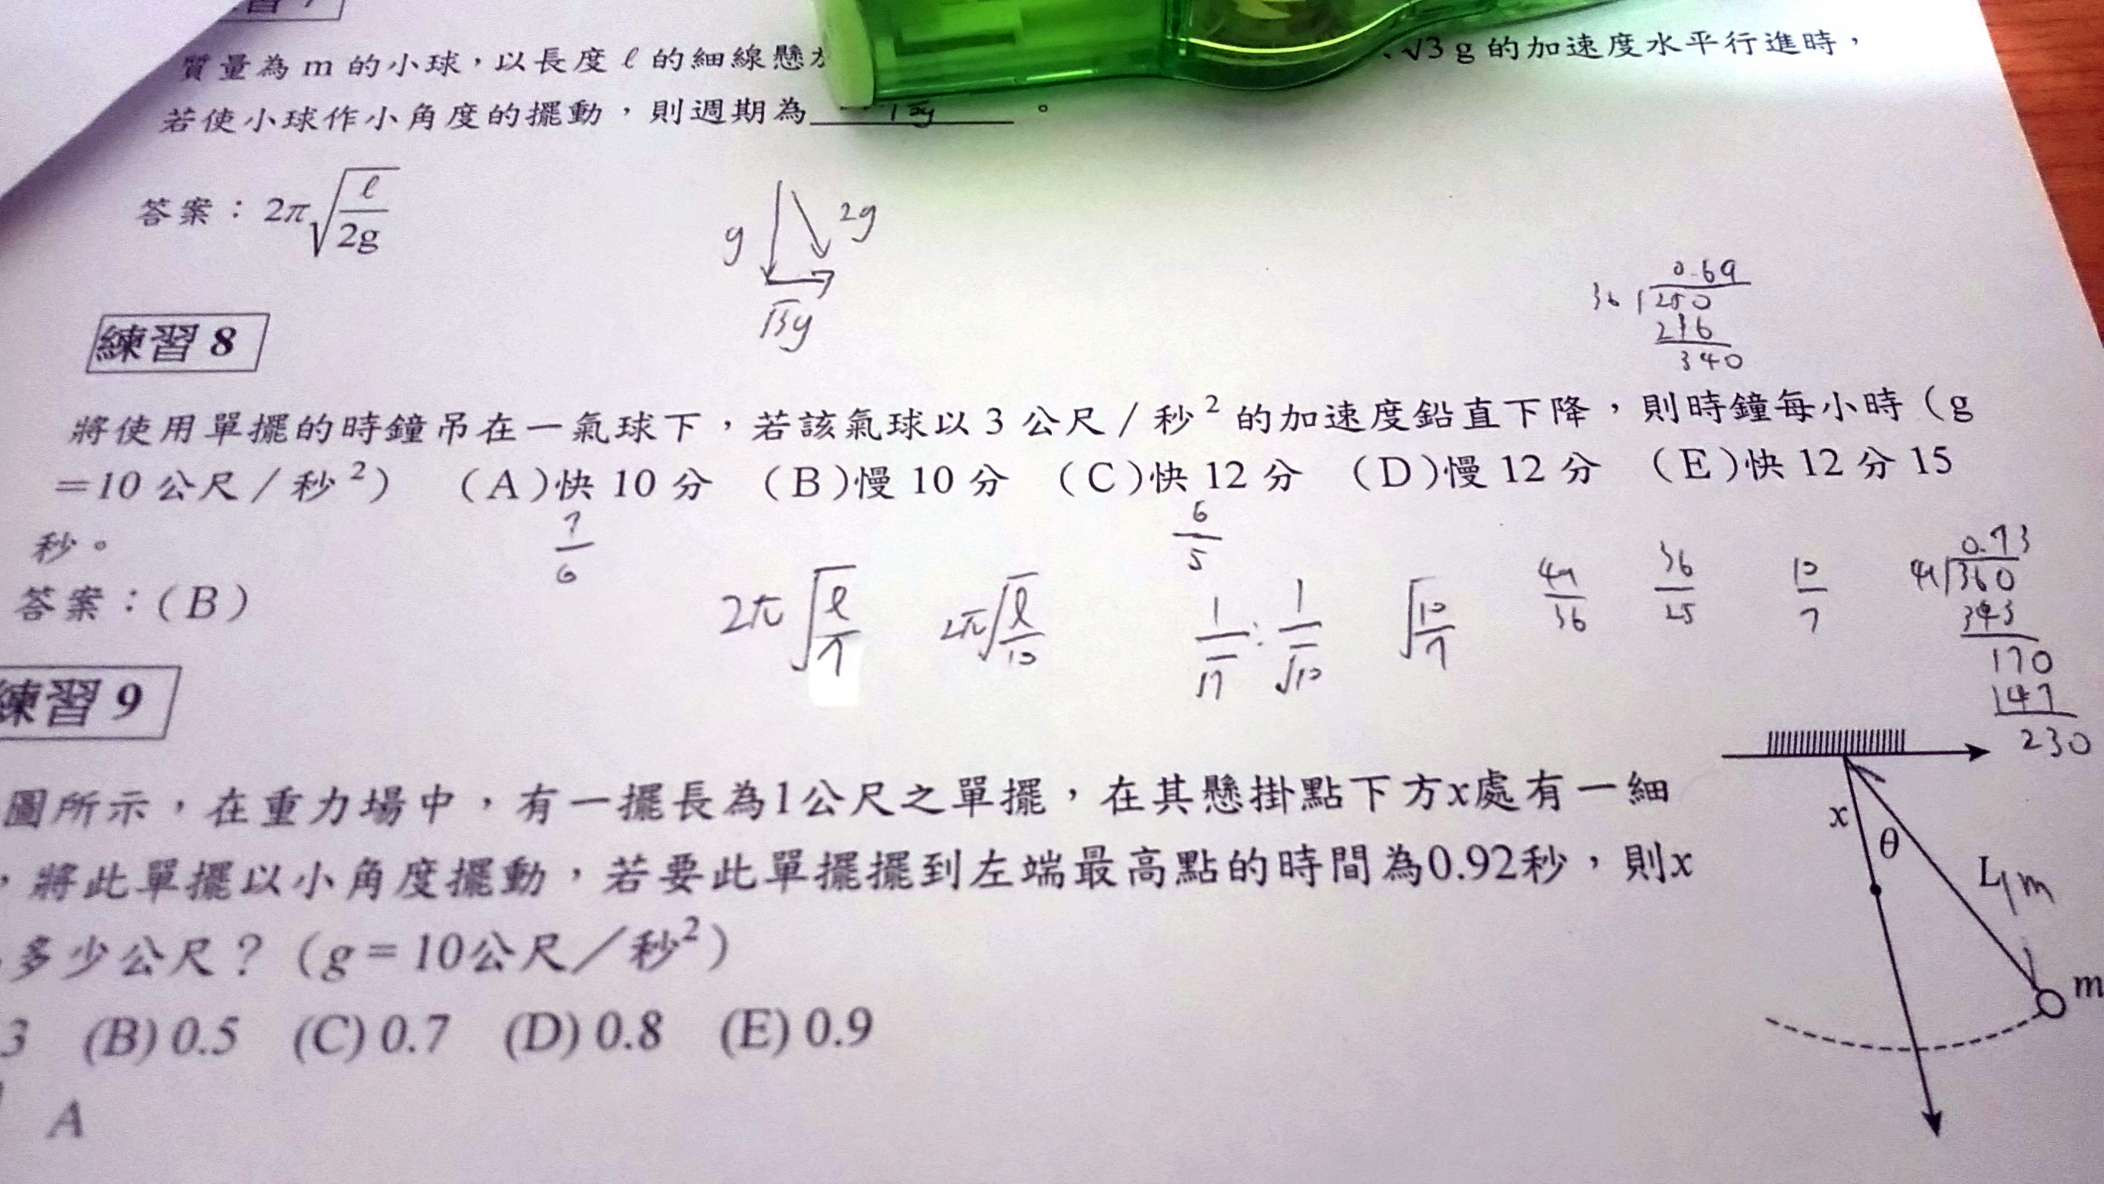 質量為 m 的小球，以長度 ℓ 的細線懸 √3 g 的加速度水平行進時，
若使小球作小角度的擺動，則週期為＿＿＿。
答案：2π√(ℓ/2g)
g 2g
√3g
0.69
36 250
216
340
練習 8
將使用單擺的時鐘吊在一氣球下，若該氣球以 3 公尺／秒² 的加速度鉛直下降，則時鐘每小時（g
＝10 公尺／秒²） （A）快 10 分 （B）慢 10 分 （C）快 12 分 （D）慢 12 分 （E）快 12 分 15
秒。
7/6 6/5
答案：（B）
2π√(ℓ/7) 2π√(ℓ/10) 1/√7 : 1/√10 √(10/7) 49/36 36/25 10/7
0.73
49 360
343
170
147
230
練習 9
圖所示，在重力場中，有一擺長為1公尺之單擺，在其懸掛點下方x處有一細
，將此單擺以小角度擺動，若要此單擺擺到左端最高點的時間為0.92秒，則x
多少公尺？（g＝10公尺／秒²）
3 (B) 0.5 (C) 0.7 (D) 0.8 (E) 0.9
A
x θ L 1m
m